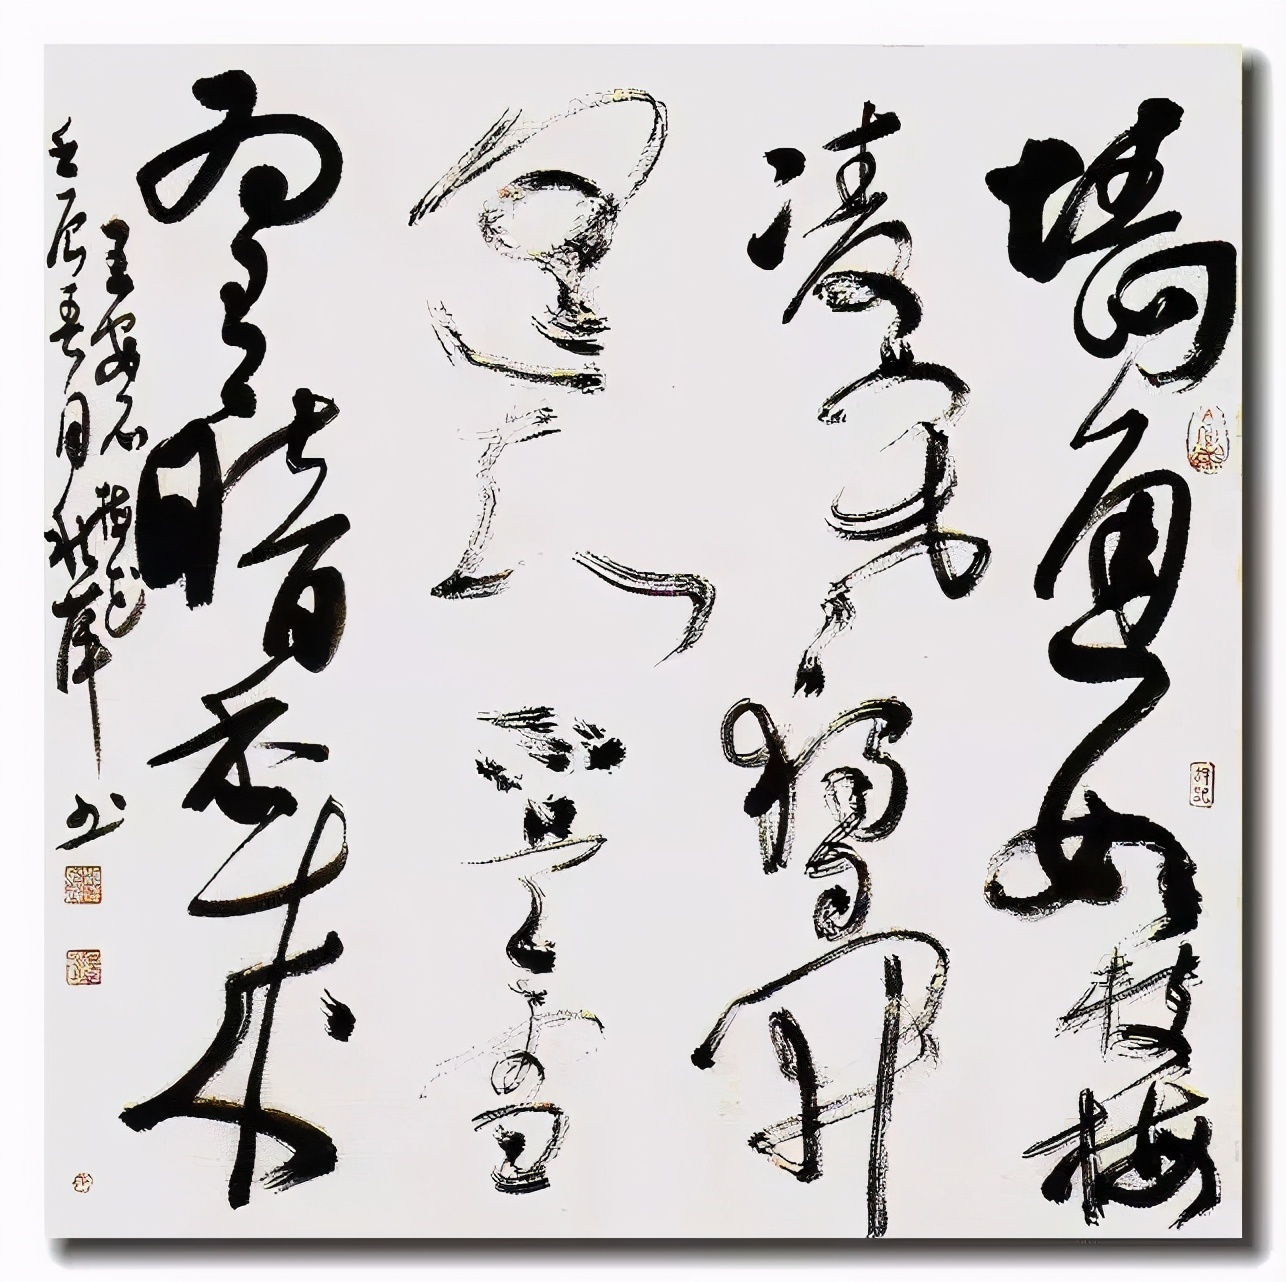 墙角数枝梅
凌寒独自开
遥知不是雪
为有暗香来
王安石梅花
壬辰春月书